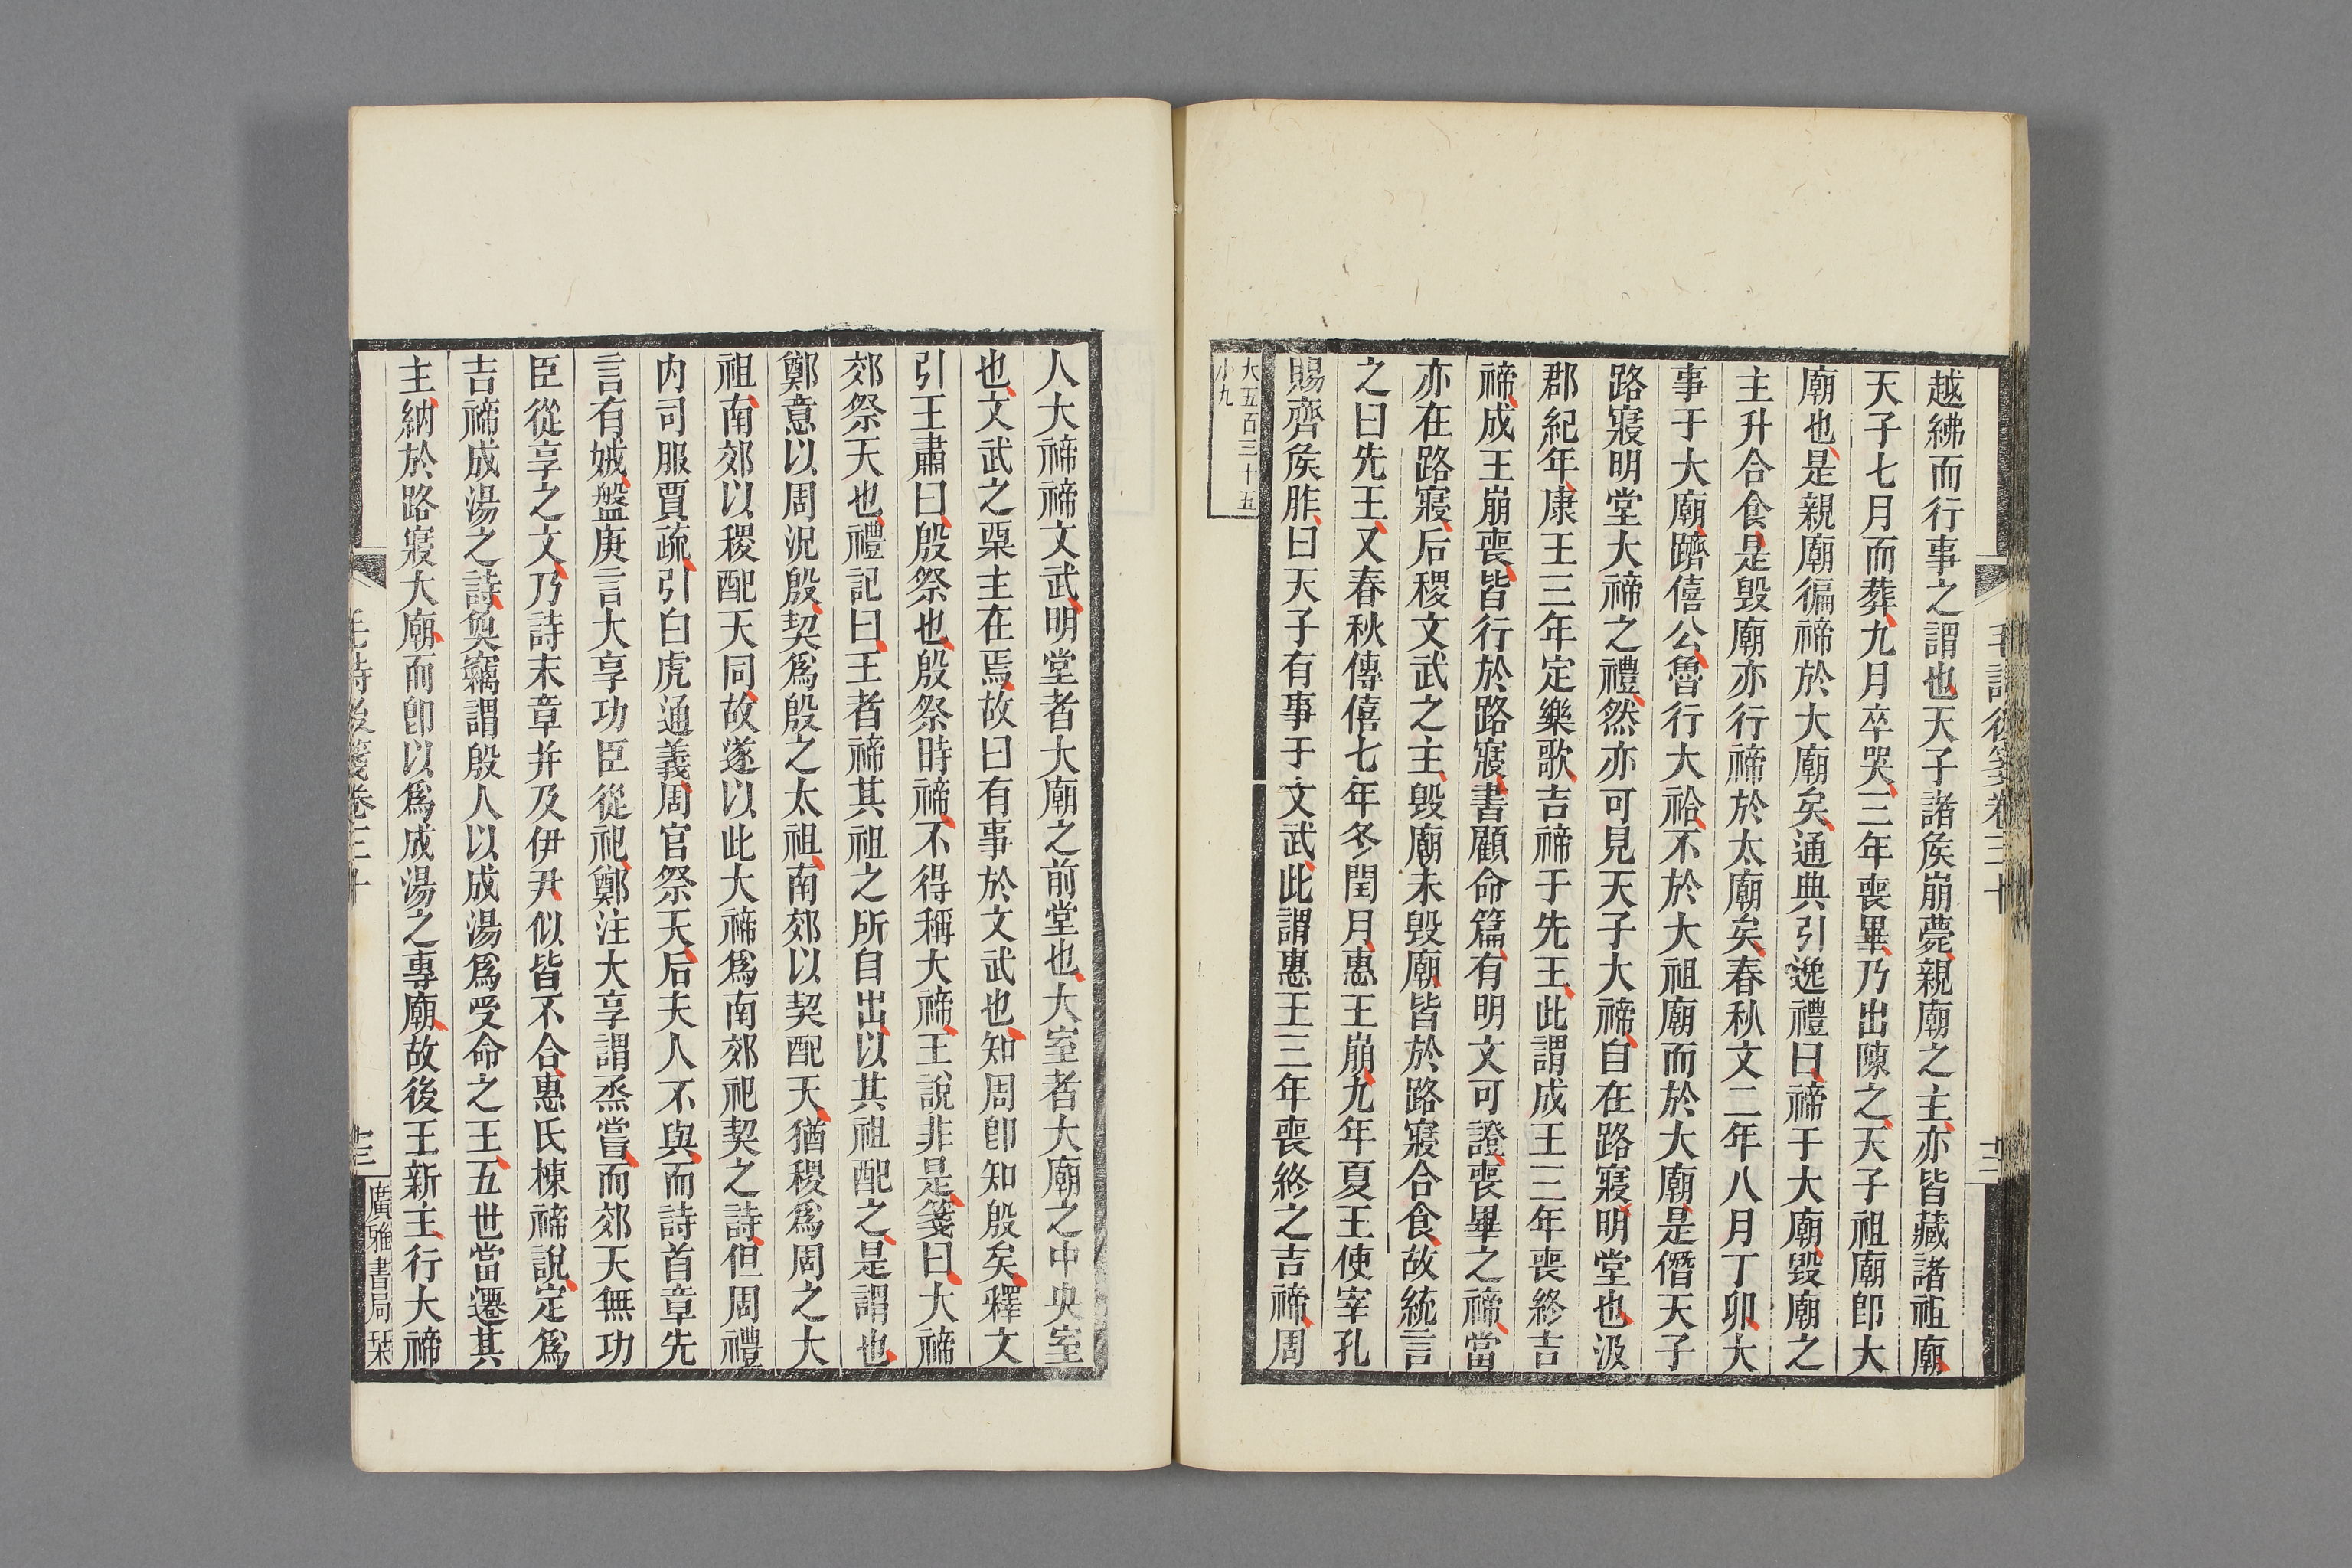 越紼而行事之謂也天子諸矦崩薨親廟之主亦皆藏諸祖廟
天子七月而葬九月卒哭三年喪畢乃出陳之天子祖廟卽大
廟也是親廟徧禘於大廟矣通典引逸禮曰禘于大廟毀廟之
主升合食是毀廟亦行禘於太廟矣春秋文二年八月丁卯大
事于大廟躋僖公魯行大祫不於大祖廟而於大廟是僭天子
路寢明堂大禘之禮然亦可見天子大禘自在路寢明堂也汲
郡紀年康王三年定樂歌吉禘于先王此謂成王三年喪終吉
禘成王崩喪皆行於路寢書顧命篇有明文可證喪畢之禘當
亦在路寢后稷文武之主毀廟未毀廟皆於路寢合食故統言
之曰先王又春秋傳僖七年冬閏月惠王崩九年夏王使宰孔
賜齊矦胙曰天子有事于文武此謂惠王三年喪終之吉禘周
大五百三十五
小九
毛詩後箋卷三十
人大禘禘文武明堂者大廟之前堂也大室者大廟之中央室
也文武之栗主在焉故曰有事於文武也知周卽知殷矣釋文
引王肅曰殷祭也殷祭時禘不得稱大禘王說非是箋曰大禘
郊祭天也禮記曰王者禘其祖之所自出以其祖配之是謂也
鄭意以周況殷契爲殷之太祖南郊以契配天猶稷爲周之大
祖南郊以稷配天同故遂以此大禘爲南郊祀契之詩但周禮
內司服賈疏引白虎通義周官祭天后夫人不與而詩首章先
言有娀盤庚言大享功臣從祀鄭注大享謂烝嘗而郊天無功
臣從享之文乃詩末章并及伊尹似皆不合惠氏棟禘說定爲
吉禘成湯之詩奐竊謂殷人以成湯爲受命之王五世當遷其
主納於路寢大廟而卽以爲成湯之專廟故後王新主行大禘
毛詩後箋卷三十
廣雅書局栞